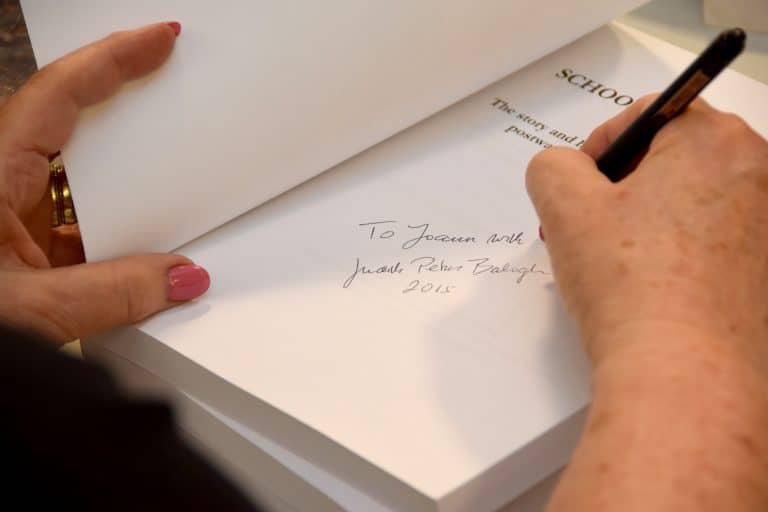 SCHOO
The story and
postwa
To Joann with
Judith Petres Balogh
2015